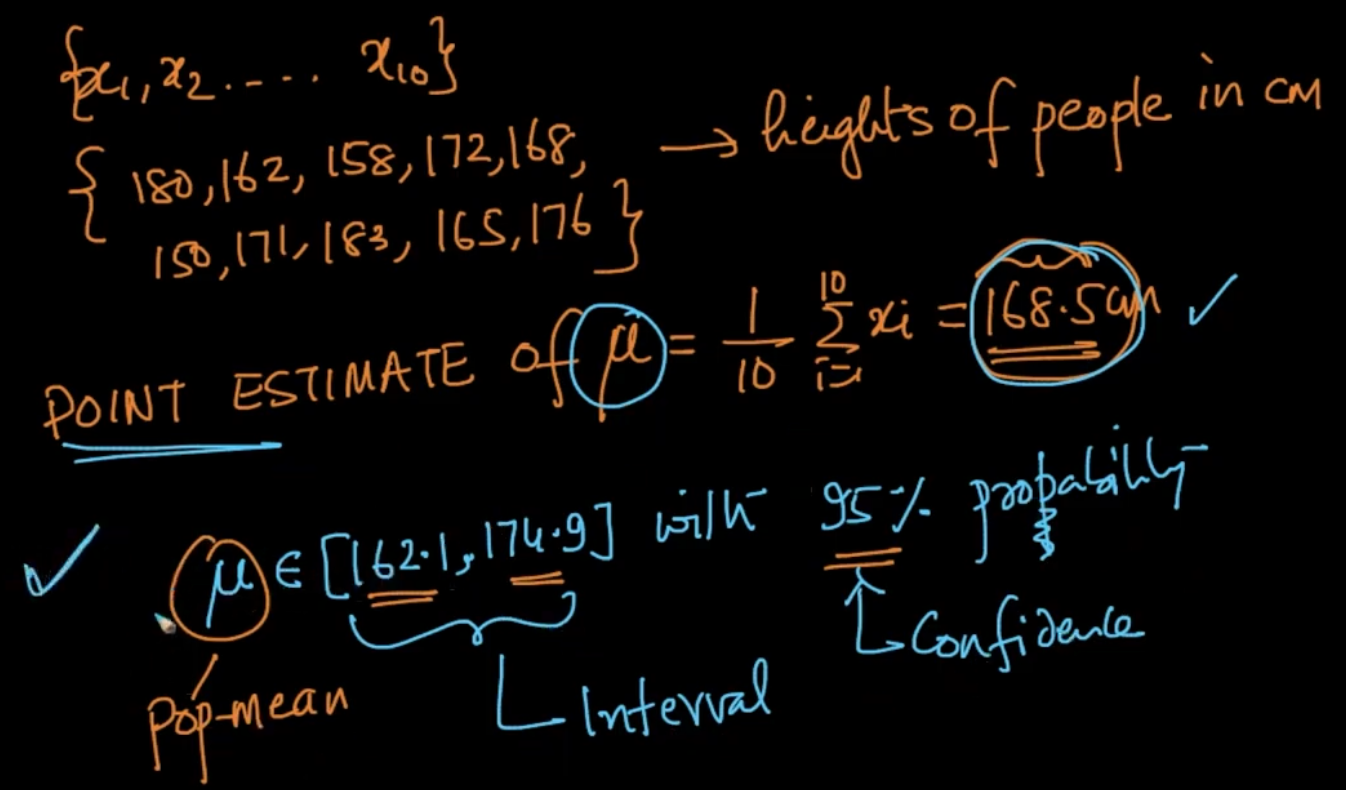 {x₁, x₂ .---. x₁₀}
{ 180, 162, 158, 172, 168,
150, 171, 183, 165, 176 }
→ heights of people in cm
POINT ESTIMATE of μ = 1/10 10 Σ i=1 xi = 168.5cm ✓
✓ μ ∈ [162.1, 174.9] with 95% probability
Confidence
Pop-mean
Interval